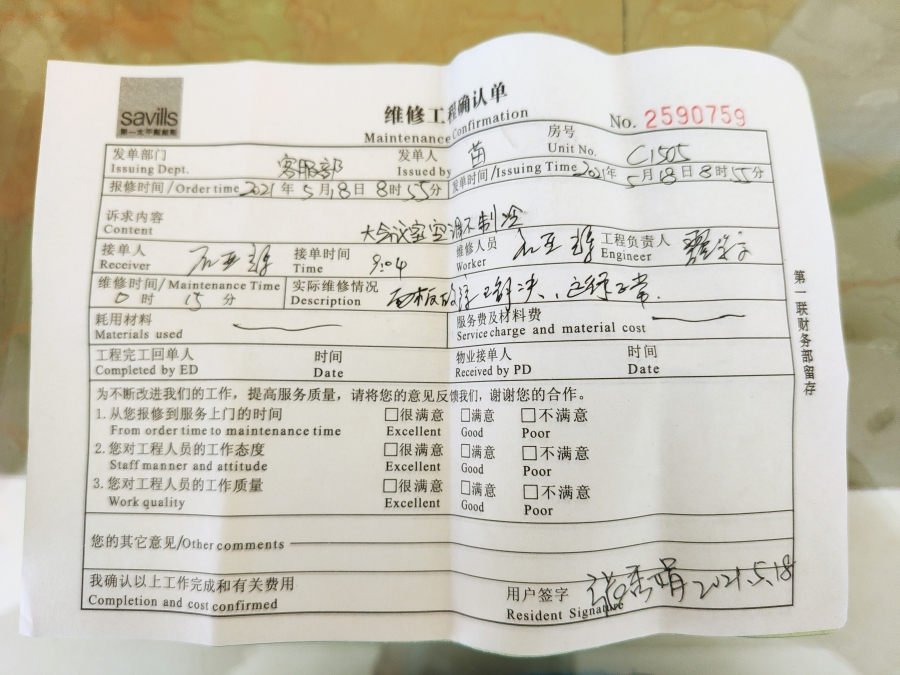 savills
第一太平戴维斯
维修工程确认单
Maintenance Confirmation
No. 2590759
发单部门 客服部 发单人 苗 房号 C1505
Issuing Dept. Issued by Unit No.
报修时间/Order time 2021年5月18日8时55分 发单时间/Issuing Time 2021年5月18日8时55分
诉求内容 大会议室空调不制冷
Content
接单人 石亚 接单时间 9:04 维修人员 石亚 工程负责人
Receiver Time Worker Engineer
维修时间/Maintenance Time 实际维修情况 面板故障已解决、运行正常.
0时15分 Description
耗用材料 服务费及材料费
Materials used Service charge and material cost
工程完工回单人 时间 物业接单人 时间
Completed by ED Date Received by PD Date
为不断改进我们的工作，提高服务质量，请将您的意见反馈我们，谢谢您的合作。
1.从您报修到服务上门的时间 □很满意 □满意 □不满意
From order time to maintenance time Excellent Good Poor
2.您对工程人员的工作态度 □很满意 □满意 □不满意
Staff manner and attitude Excellent Good Poor
3.您对工程人员的工作质量 □很满意 □满意 □不满意
Work quality Excellent Good Poor
您的其它意见/Other comments
我确认以上工作完成和有关费用 用户签字 2021.5.18
Completion and cost confirmed Resident Signature
第一联财务部留存